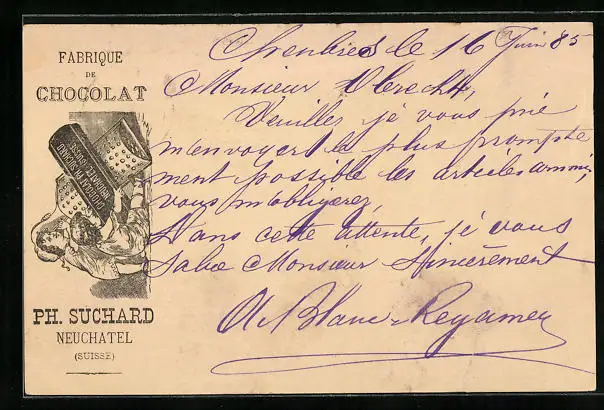 FABRIQUE
DE
CHOCOLAT
CHOCOLAT PH. SUCHARD
NEUCHATEL (SUISSE)
PH. SUCHARD
NEUCHATEL
(SUISSE)
le 16 Juin 85
Monsieur Obrecht,
Veuillez je vous prie
m'envoyer le plus prompte
ment possible les articles commis,
vous m'obligerez,
Dans cette attente, je vous
salue Monsieur Sincèrement
Blanc-Reyamey